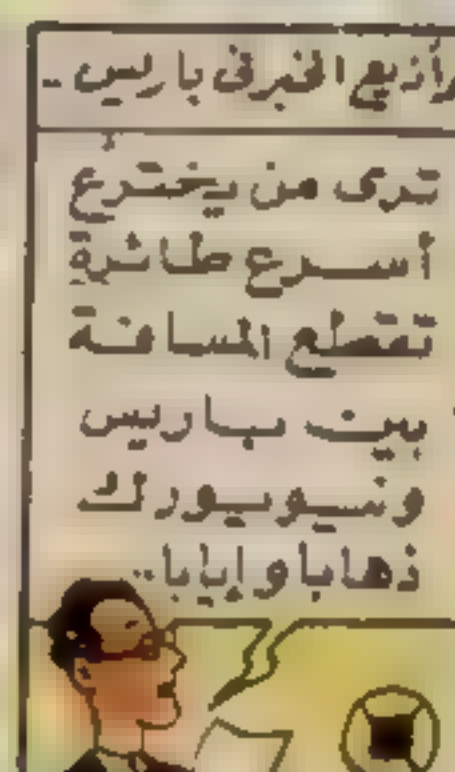 وأذيع الخبر في باريس ..
ترى من يخترع
أسرع طائرة
تقطع المسافة
بين باريس
ونيويورك
ذهابا وإيابا ..